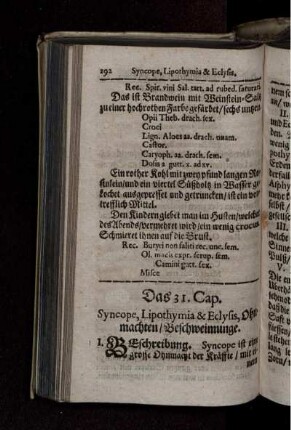 292 Syncope, Lipothymia & Eclysis,
Rec. Spir. vini Sal. tart. ad rubed. saturati
Das ist Brandwein mit Weinstein-Saltz
zu einer hochrothen Farbe gefärbet/sechs untzen
Opii Theb. drach. sex.
Croci
Lign. Aloes aa. drach. unam.
Castor.
Caryoph. aa. drach. sem.
Dosis à gutt. x. ad xv.
Ein rother Kohl mit zwey pfund langen Ro-
sinlein/und ein viertel Süßholtz in Wasser ge-
kochet/ausgepresset und getruncken/ist ein vor-
trefflich Mittel.
Den Kindern giebet man im Husten/welcher
des Abends/vermehret wird/ein wenig crocus
Schmieret ihnen auf die Brust,
Rec. Butyri non saliti rec. unc. sem.
Ol. macis expr. scrup. sem.
Camini gutt. sex.
Misce
Das 31. Cap.
Syncope, Lipothymia & Eclysis, Ohn-
machten/Beschweimunge.
1. BEschreibung. Syncope ist eine
große Ohnmacht der Kräffte/mit ei-